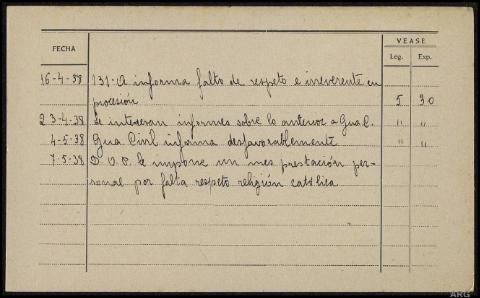 FECHA
VEASE
Leg. Exp.
16-4-38 131-A informa falto de respeto e irreverente en
procesión 5 30
23-4-38 Se interesan informes sobre lo anterior a Gua C. " "
4-5-38 Gua Civil informa desfavorablemente " "
7-5-38 D.V.O. le impone un mes prestación per-
sonal por falta respeto religión católica
ARG